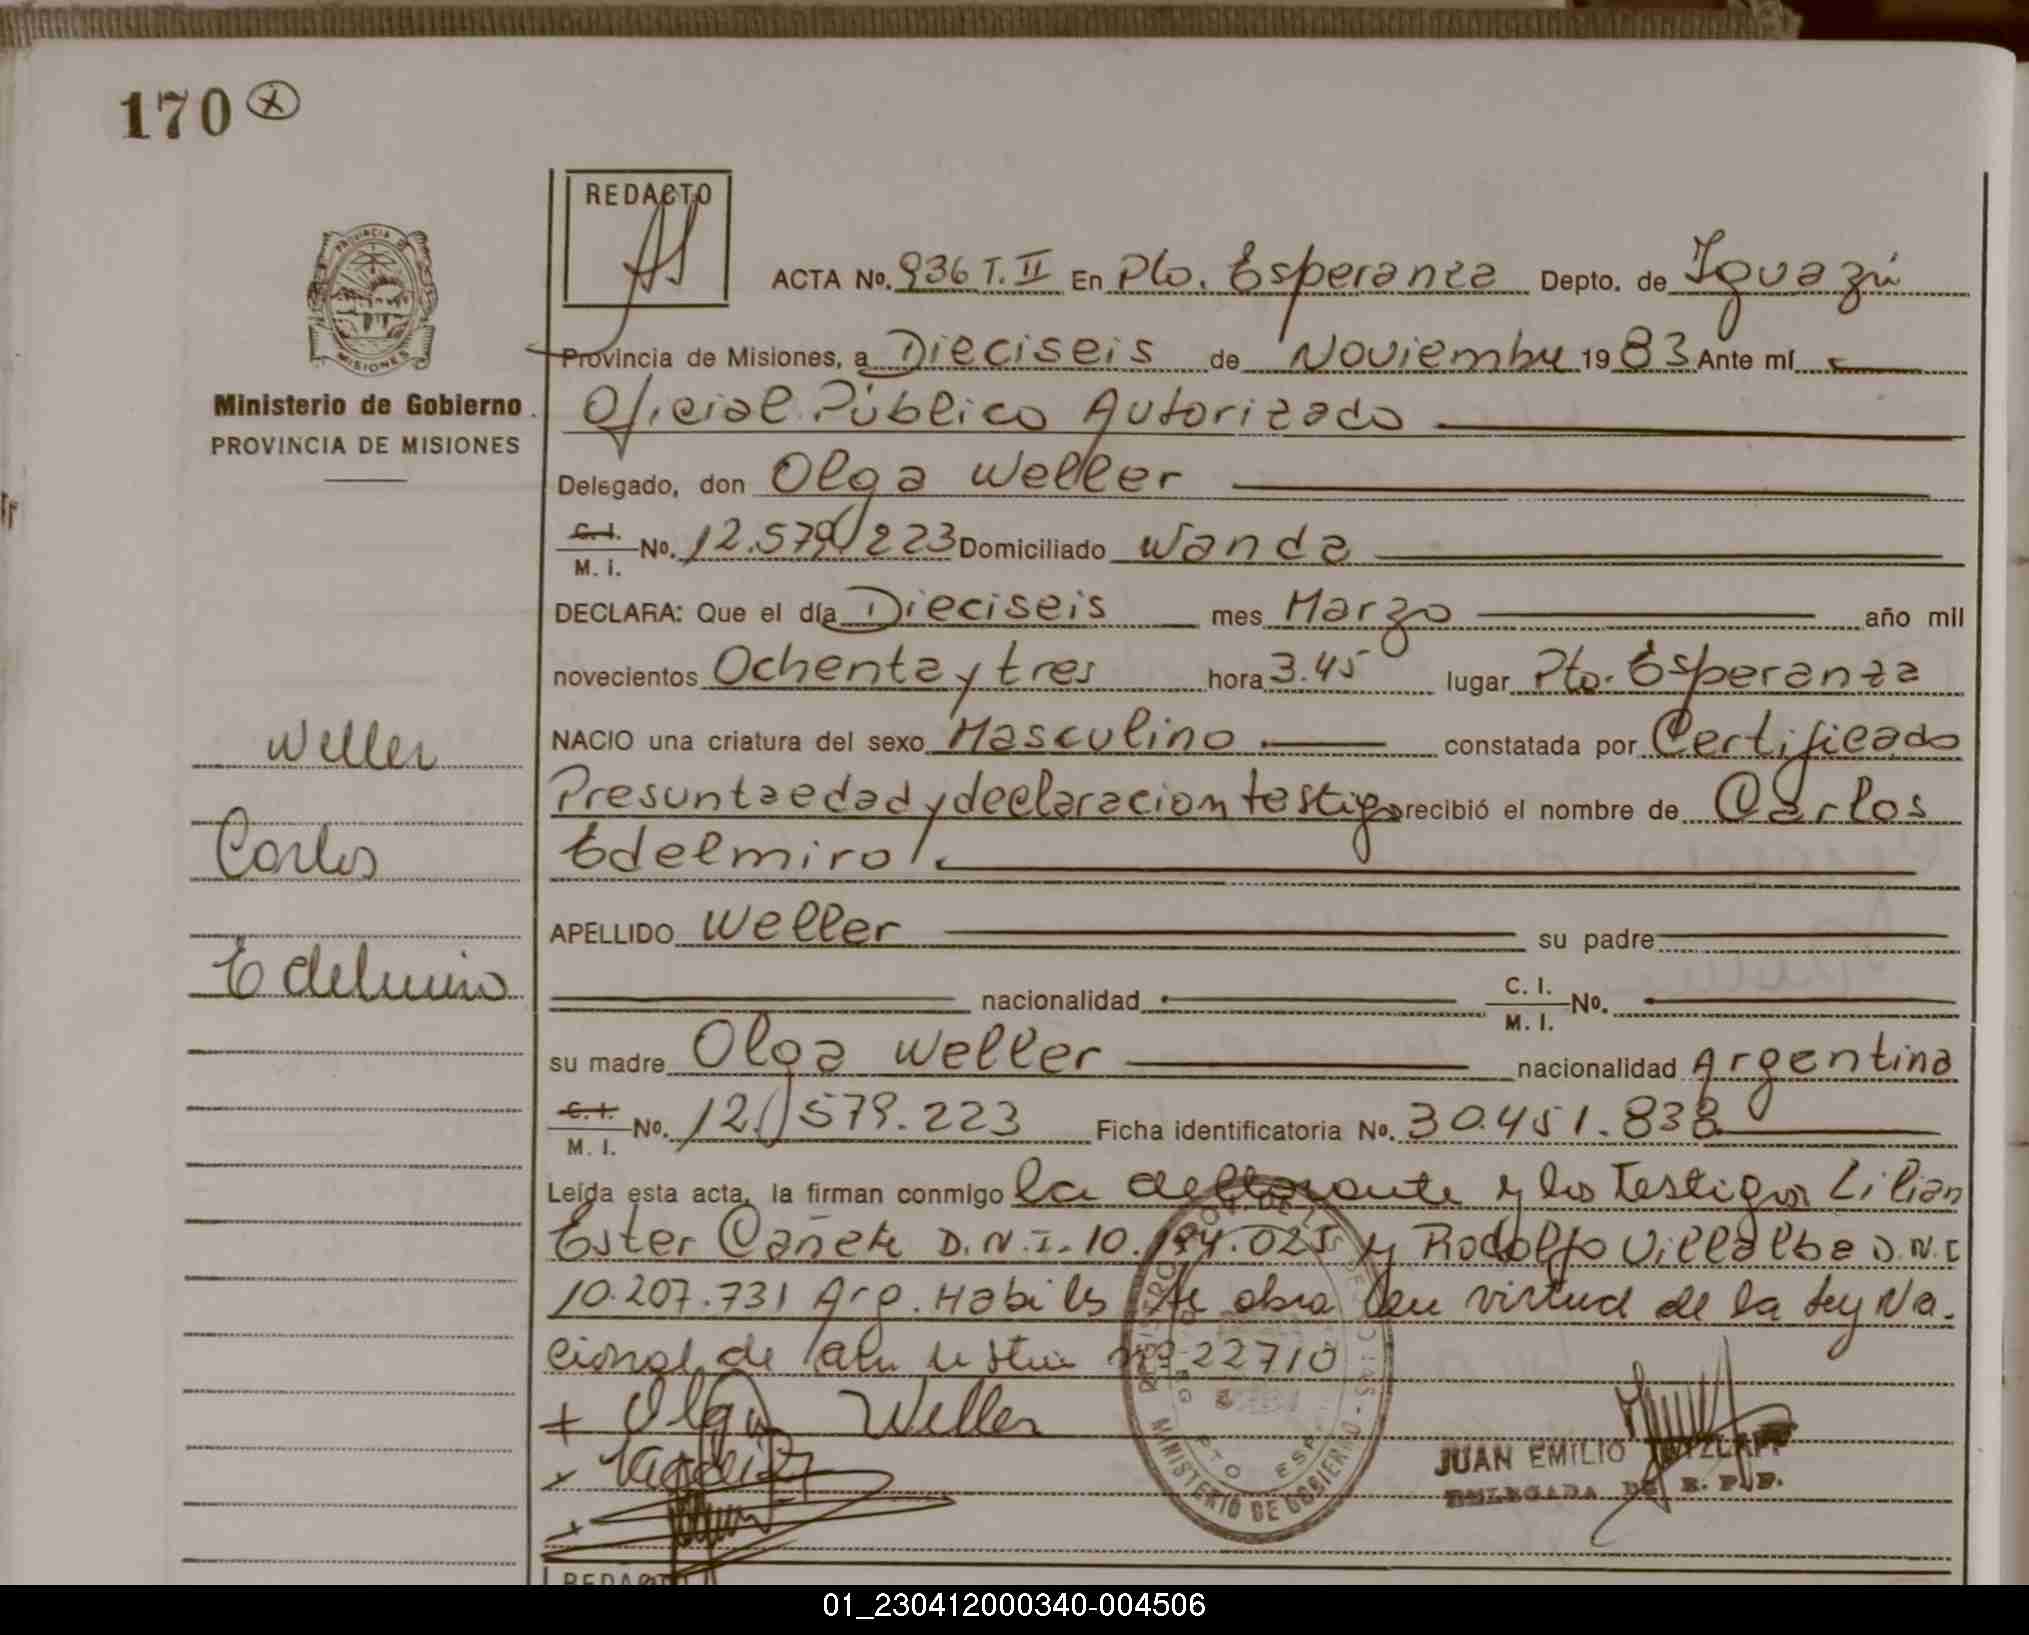 170 X
REDACTO
ACTA No. 936 T. II En Pto. Esperanza Depto. de Iguazú
Provincia de Misiones, a Dieciseis de Noviembre 1983 Ante mí
PROVINCIA DE
MISIONES
Ministerio de Gobierno
PROVINCIA DE MISIONES
Oficial Público Autorizado
Delegado, don Olga Weller
C. I. / M. I. No. 12.579.223 Domiciliado Wanda
DECLARA: Que el día Dieciseis mes Marzo año mil
novecientos Ochenta y tres hora 3.45 lugar Pto. Esperanza
NACIO una criatura del sexo Masculino constatada por Certificado
Presunta edad y declaracion testigo recibió el nombre de Carlos
Edelmiro.
Weller
Carlos
Edelmiro
APELLIDO Weller su padre
nacionalidad C. I. / M. I. No.
su madre Olga Weller nacionalidad Argentina
C. I. / M. I. No. 12.579.223 Ficha identificatoria No. 30.451.838
Leída esta acta, la firman conmigo la declarante y los Testigos Lilian
Ester Cañete D.N.I. 10.194.025 y Rodolfo Villalba D.N.I
10.207.731 Arg. Habiles de obra en virtud de la Ley Na.
cional de nº 22710
+ Olga Weller
REGISTRO PROV. DE LAS PERSONAS
MINISTERIO DE GOBIERNO
PTO ESP.
JUAN EMILIO
DELEGADA DE R. P. P.
REDACTO
01_230412000340-004506